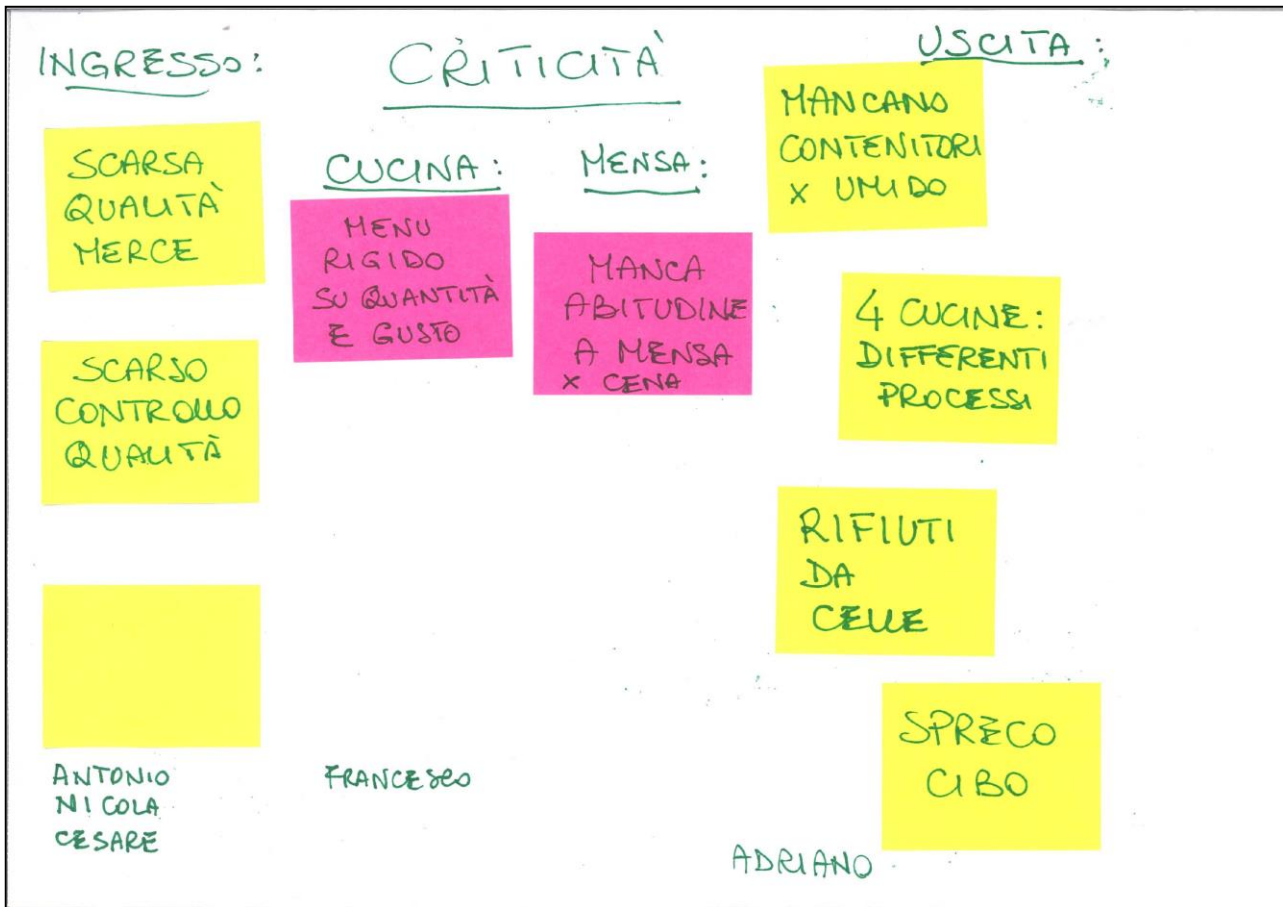 CRITICITÀ
INGRESSO:
SCARSA
QUALITÀ
MERCE
SCARSO
CONTROLLO
QUALITÀ
ANTONIO
NICOLA
CESARE
CUCINA:
MENU
RIGIDO
SU QUANTITÀ
E GUSTO
FRANCESCO
MENSA:
MANCA
ABITUDINE
A MENSA
X CENA
USCITA:
MANCANO
CONTENITORI
X UMIDO
4 CUCINE:
DIFFERENTI
PROCESSI
RIFIUTI
DA
CELLE
SPRECO
CIBO
ADRIANO